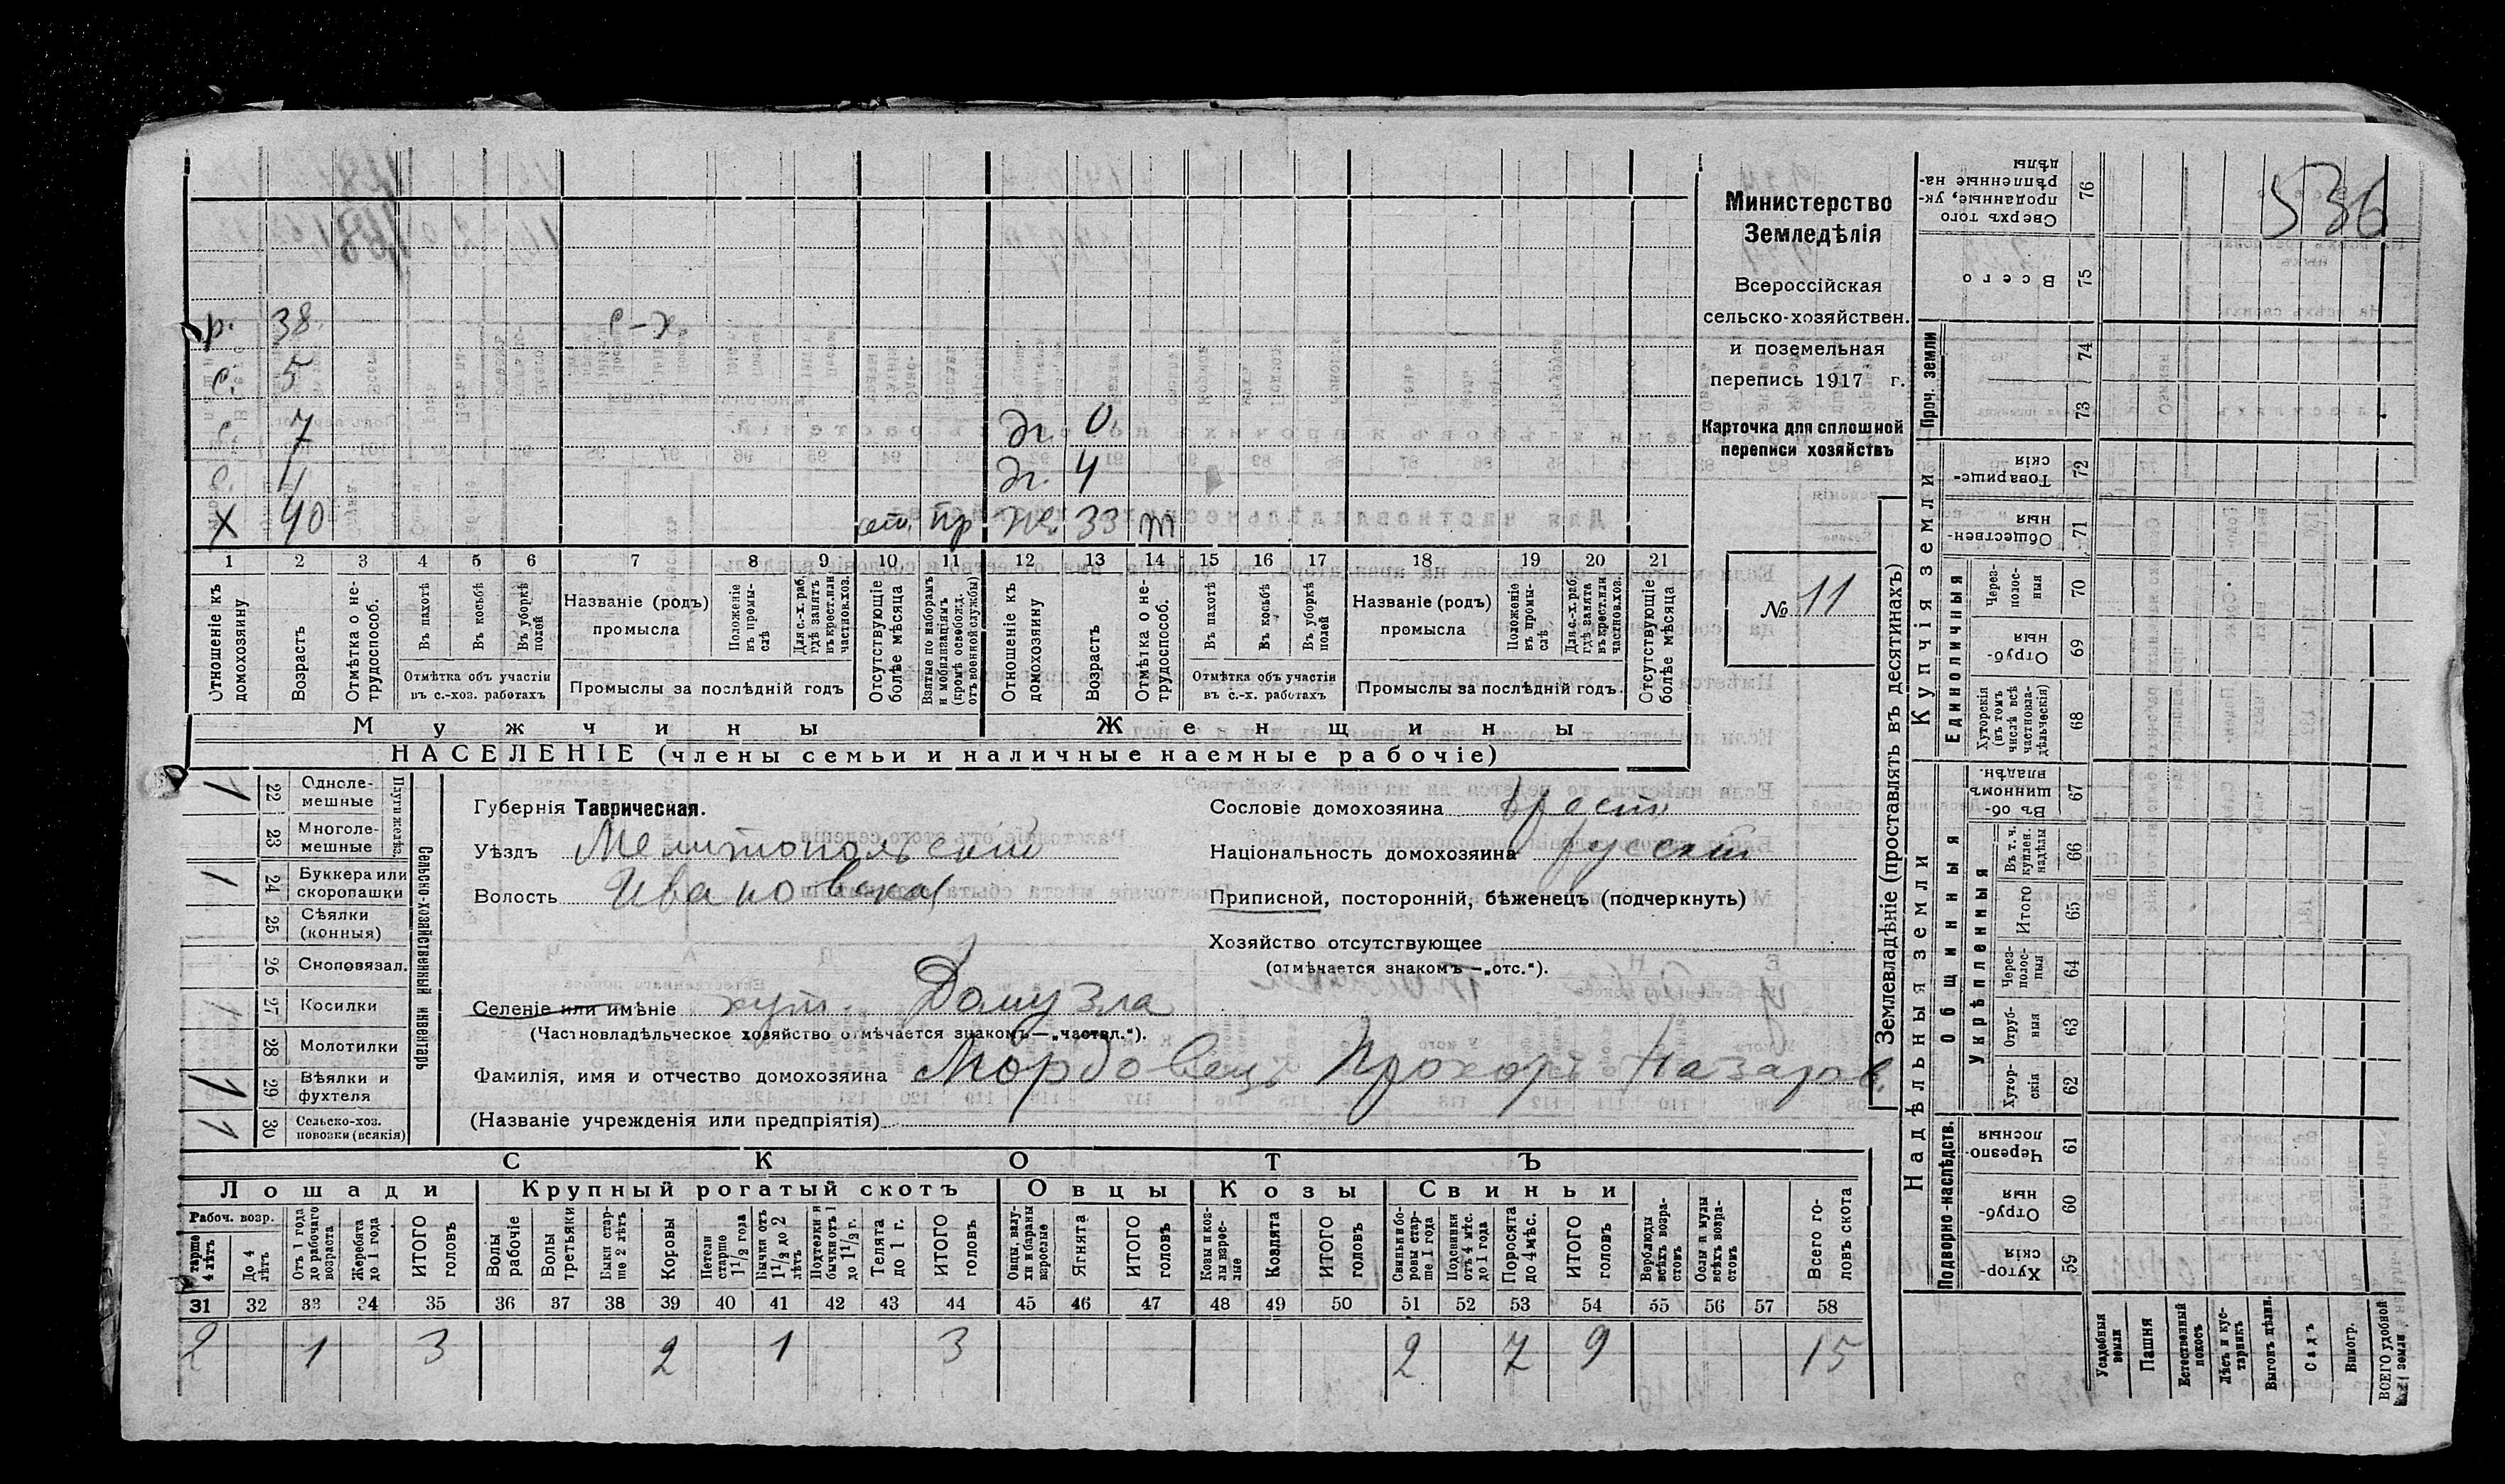 536
Министерство
Земледѣлія
Всероссійская
сельско-хозяйствен.
и поземельная
перепись 1917 г.
Карточка для сплошной
переписи хозяйствъ
№ 11
р. 38. с-х.
с. 5
с. 7 дг. 0.
с. 11 дг. 4
х 40 пр 33
1 2 3 4 5 6 7 8 9 10 11 12 13 14 15 16 17 18 19 20 21
Отношеніе къ домохозяину
Возрастъ
Отмѣтка о не-трудоспособ.
Въ пахотѣ
Въ косьбѣ
Въ уборкѣ полей
Отмѣтка объ участіи въ с.-хоз. работахъ
Названіе (родъ) промысла
Положеніе въ промы-слѣ
Для с.-х. раб. гдѣ занятъ въ крест. или частнов. хоз.
Промыслы за послѣдній годъ
Отсутствующіе болѣе мѣсяца
Взятые по наборамъ и мобилизаціямъ (кромѣ освобожд. отъ военной службы)
Отношеніе къ домохозяину
Возрастъ
Отмѣтка о не-трудоспособ.
Въ пахотѣ
Въ косьбѣ
Въ уборкѣ полей
Отмѣтка объ участіи въ с.-х. работахъ
Названіе (родъ) промысла
Положеніе въ промы-слѣ
Для с.-х. раб. гдѣ занята въ крест. или частнов. хоз.
Промыслы за послѣдній годъ.
Отсутствующіе болѣе мѣсяца
Мужчины Женщины
НАСЕЛЕНІЕ (члены семьи и наличные наемные рабочіе)
Сельско-хозяйственный инвентарь
Плуги желѣз.
1 22 Одноле-мешные
23 Многоле-мешные
1 24 Буккера или скоропашки
25 Сѣялки (конныя)
26 Сноповязал.
27 Косилки
28 Молотилки
1 29 Вѣялки и фухтеля
1 30 Сельско-хоз. повозки (всякія)
Губернія Таврическая.
Уѣздъ Мелитопольскій
Волость Ивановская
Селеніе или имѣніе хут. Домузла
(Частновладѣльческое хозяйство отмѣчается знакомъ—„частвл.“).
Фамилія, имя и отчество домохозяина Мордовецъ Прохоръ Назаров.
(Названіе учрежденія или предпріятія)
Сословіе домохозяина крест.
Національность домохозяина русскій
Приписной, посторонній, бѣженецъ (подчеркнуть)
Хозяйство отсутствующее
(отмѣчается знакомъ—„отс.“).
СКОТЪ
Лошади Крупный рогатый скотъ Овцы Козы Свиньи
Рабоч. возр.
старше 4 лѣтъ
До 4 лѣтъ
Отъ 1 года до рабочаго возраста
Жеребята до 1 года
ИТОГО головъ
Волы рабочіе
Волы третьяки
Быки стар-ше 2 лѣтъ
Коровы
Нетели старше 1½ года
Бычки отъ 1½ до 2 лѣтъ
Подтелки и бычки отъ 1 до 1½ г.
Телята до 1 г.
ИТОГО головъ
Овцы, валу-хи и бараны взрослые
Ягнята
ИТОГО головъ
Козы и коз-лы взрос-лые
Козлята
ИТОГО головъ
Свиньи и бо-ровы стар-ше 1 года
Подсвинки отъ 4 мѣс. до 1 года
Поросята до 4 мѣс.
ИТОГО головъ
Верблюды всѣхъ возра-стовъ
Ослы и мулы всѣхъ возра-стовъ
Всего го-ловъ скота
31 32 33 34 35 36 37 38 39 40 41 42 43 44 45 46 47 48 49 50 51 52 53 54 55 56 57 58
2 1 3 2 1 3 2 7 9 15
Землевладѣніе (проставлять въ десятинахъ)
Купчія земли
Проч. земли
Единоличныя
Надѣльныя земли
Общинныя
Укрѣпленныя
Подворно-наслѣдств.
Сверхъ того проданные, ук-рѣпленные на-дѣлы 76
Всего 75
74
73
Товарище-скія 72
Обществен-ныя 71
Через-полос-ныя 70
Отруб-ныя 69
Хуторскія (въ томъ числѣ всѣ частновла-дѣльческія) 68
Въ об щинномъ владѣн. 67
Въ т. ч. куплен. надѣлы 66
Итого 65
Через-полос-ныя 64
Отруб-ныя 63
Хутор-скія 62
Черезпо-лосныя 61
Отруб-ныя 60
Хутор-скія 59
Усадебныя земли
Пашня
Естественный покосъ
Лѣсъ и кус-тарникъ
Выгонъ цѣлин.
Садъ
Виногр.
ВСЕГО удобной земли